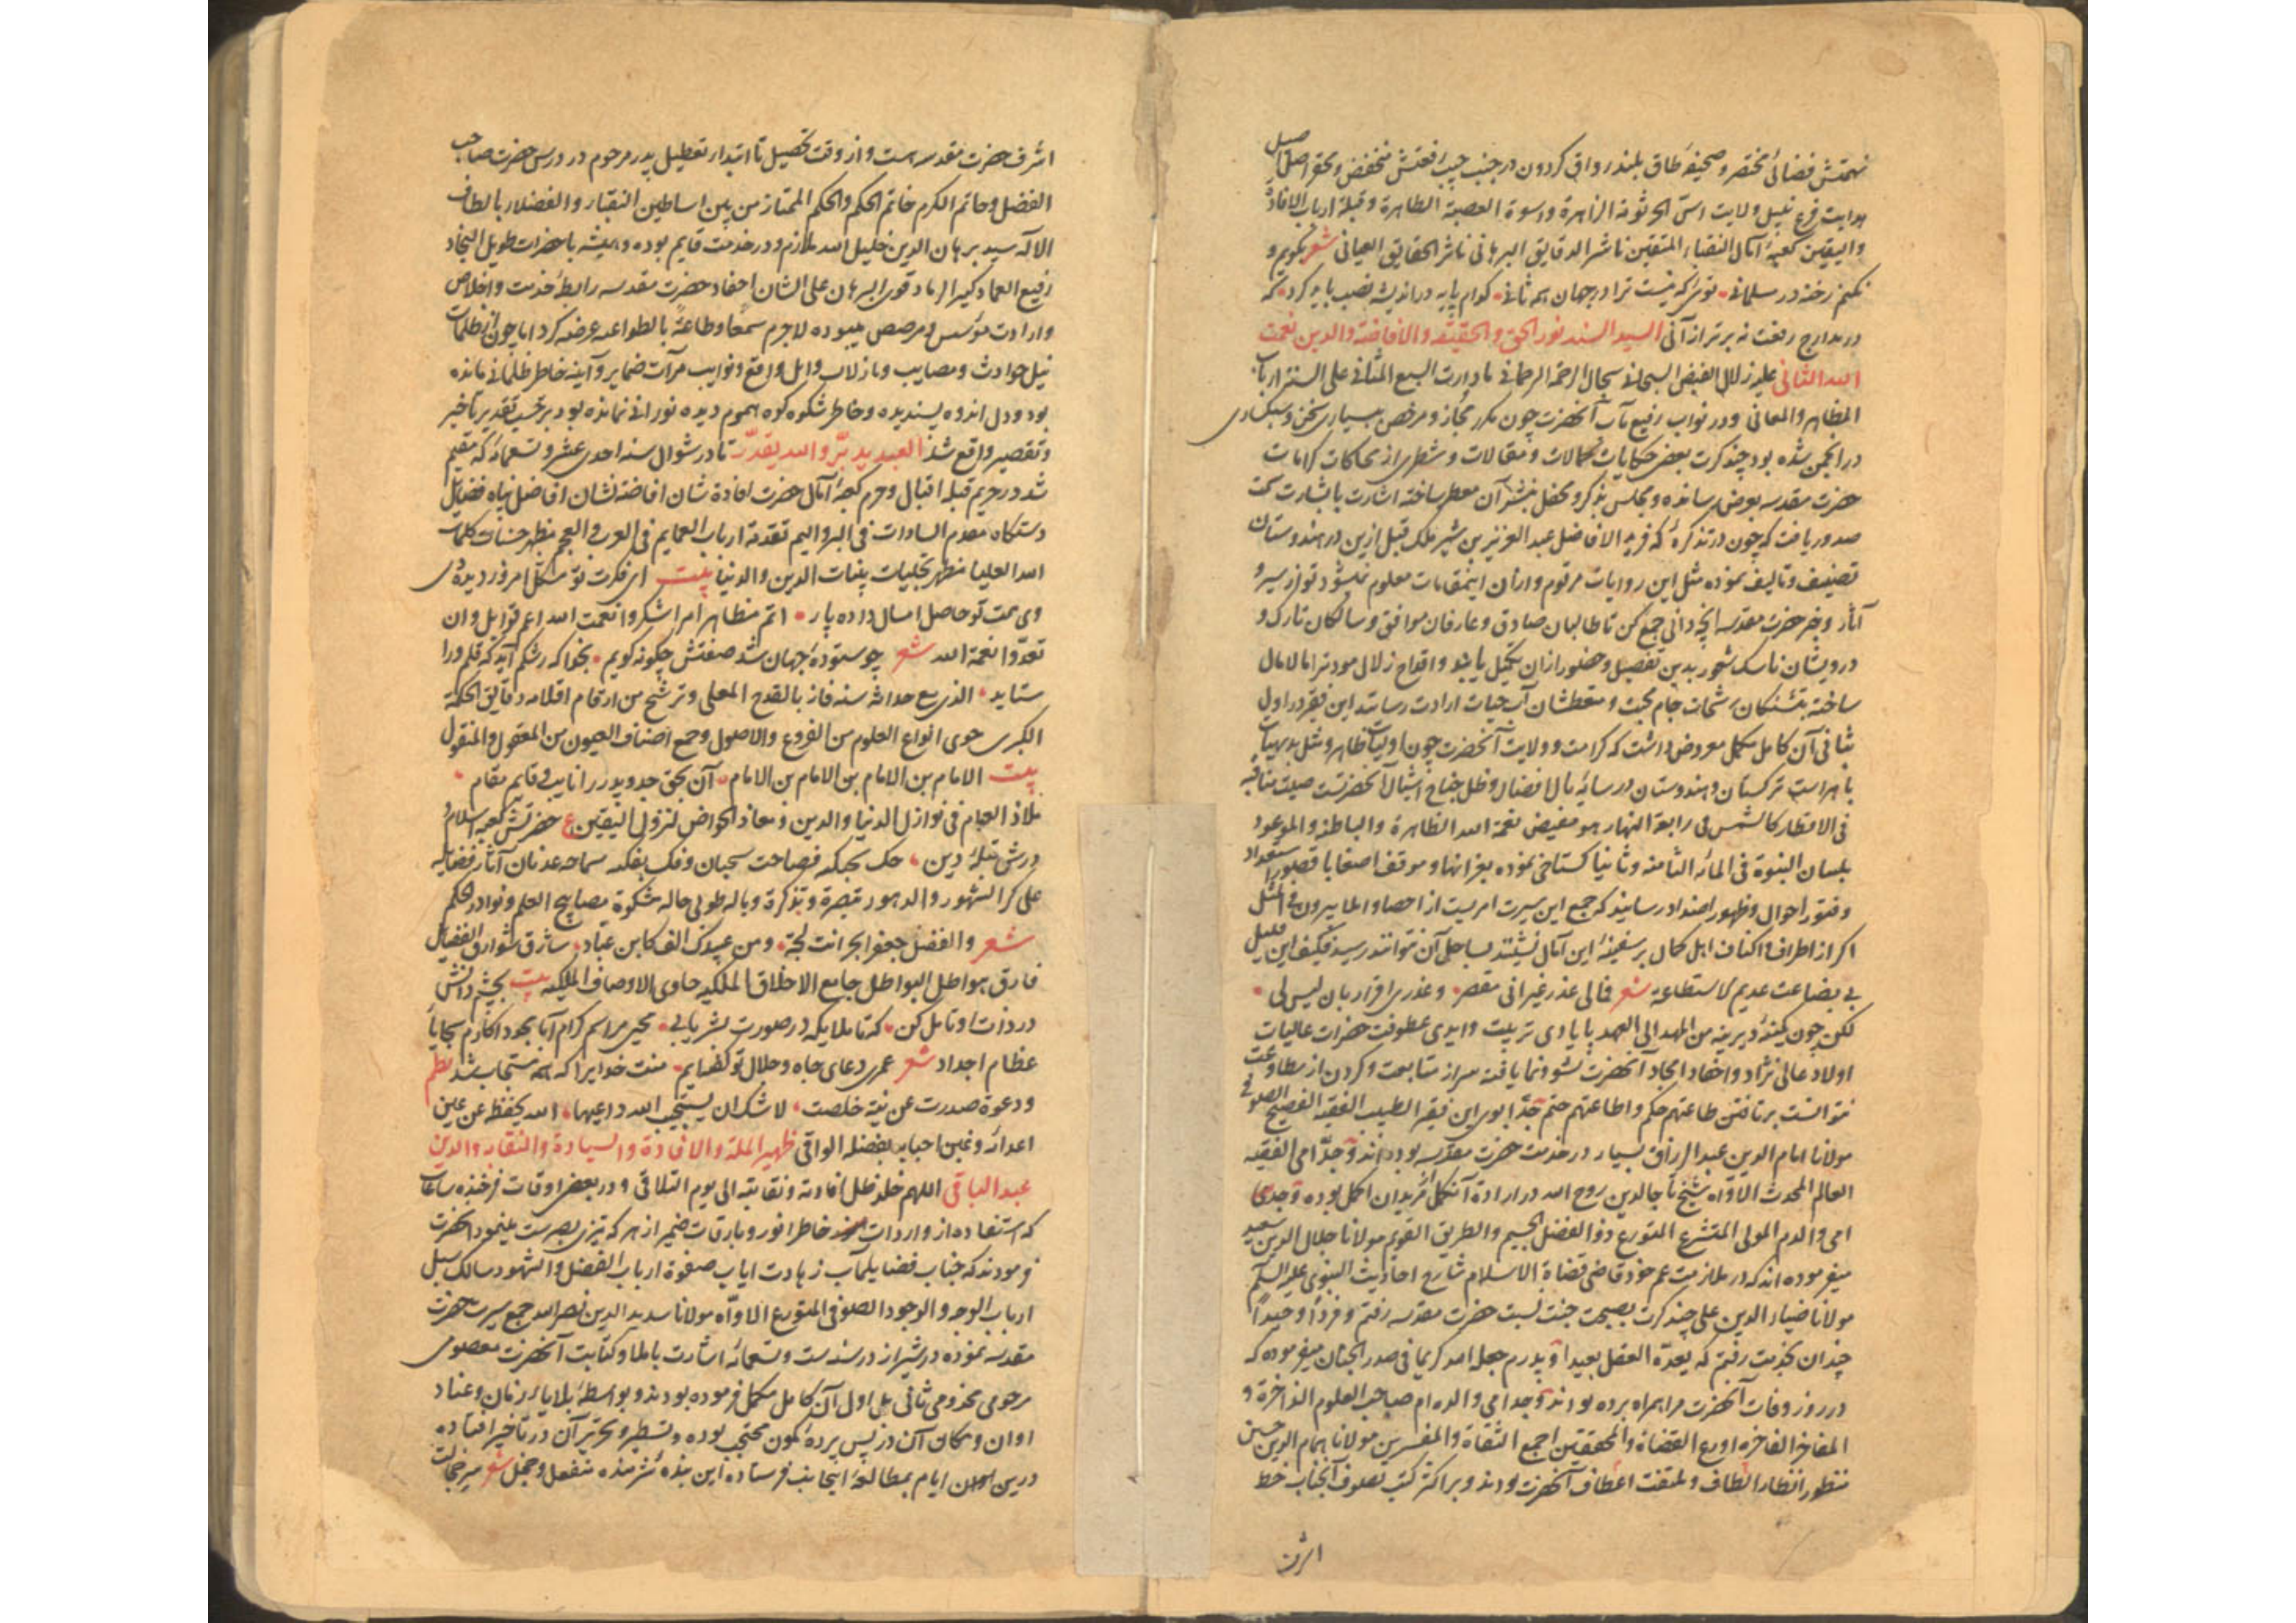 نهمتش فضائی مختصر و صحیفه طاق بلند رواق کردون در جنب جیب رفعتش منخفض و محقر اصل اصیل
هدایت فرع نبیل ولایت اسّ الجرثومة الزاهرة و اسوة العصبة الطاهرة و قبلة ارباب الافادة
والیقین کعبه آمال النقباء المتقین ناشر الدقایق البرهانی ناثر الحقایق العیانی شعر بگویم و
نکنم رخنه در مسلمانی توئی که نیست ترا در جهان همه ثانی کدام پایه در اندیشه نصب باید کرد که
در مدارج رفعت نه برتر از آنی السید السند نور الحق والحقیقة والافاضة والدین نعمت
الله الثانی علیه زلال الفیض السبحانی سجال الرحمة الرحمانی ما دارت السبع المثانی علی السنة ارباب
المظاهر والمعانی و در نواب رفیع مآب آنحضرت چون مکرر مجاز و مرخص بسیاری سخن و سبکساری
در انجمن شده بود چند کرت بعض حکایات کمالات و مقالات و شطری از محاکات کرامات
حضرت مقدسه بعرض رسانده و مجلس بذکر و محفل بنشر آن معطر ساخته اشارت بابشارت سمت
صدور یافت که چون در تذکرهٔ که فرید الافاضل عبد العزیز بن شیر ملک قبل ازین در هندوستان
تصنیف و تالیف نموده مثل این روایات مرقوم و ازان اینمقامات معلوم نمیشود تو از سیر و
آثار و خبر حضرت مقدسه آنچه دانی جمع کن تا طالبان صادق و عارفان موافق و سالکان تارک و
درویشان ناسک شعور بدین تفصیل و حضور ازان تکمیل یابند و اقداح زلالی مودت را مالامال
ساخته بتشنکان رشحات جام محبت و متعطشان آب حیات ارادت رسانند این فقیر در اول
ثانی آن کامل مکمل معروض داشت که کرامت و ولایت آنحضرت چون اولیات ظاهر و مثل بدیهیات
باهر است ترکستان و هندوستان در سایه بال افضال و ظل جناح اشبال آنحضرتست صیت مناقبه
فی الاقطار کالشمس فی رابعة النهار هو مفیض نعمة الله الظاهرة والباطنة والموعود
بلسان النبوة فی المائه الثامنه و ثانیا کستاخی نموده بعز انها و موقف اصغا با قصور استعداد
و فتور احوال و ظهور اضداد رسانید که جمع این سیرت امریست از احصا و املا بیرون فی المثل
اکر از اطراف و اکناف اهل کمال بر سفینهٔ این آمال نشینند بساحل آن نتوانند رسید فکیف این قلیل
بی بضاعت عدیم الاستطاعه شعر فمالی عذر غیر انی مقصر و عذری اقرار بان لیس لی
لکن چون کمینهٔ دیرینه من المهد الی العهد بایادی تربیت و ایدی عطوفت حضرات عالیات
اولاد عالی نژاد و احفاد امجاد آنحضرت نشو و نما یافته سر از متابعت و کردن از مطاوعت
نتوانست برتافتن طاعتهم حکم و اطاعتهم حتم جدّ ابوی این فقیر الطبیب الفقیه الفصیح الصوفی
مولانا امام الدین عبد الرزاق بسیار در خدمت حضرت مقدسه بوده اند و جدّ امی الفقیه
العالم المحدث الاوّاه شیخ تاج الدین روح الله در ارادة آنکمل مریدان اکمل بوده و جدی
امی والدم المولی المتشرع المتورع ذو الفضل الجسیم والطریق القویم مولانا جلال الدین سعید
میفرموده اند که در ملازمت عم خود قاضی قضاة الاسلام شارح احادیث النبوی علیه السلم
مولانا ضیاء الدین علی چند کرت بصحبت جنت نسبت حضرت مقدسه رفتم و فرداً وحیداً
چندان بخدمت رفتم که یعدّه العقل بعیدا و پدرم جعله الله کریما فی صدر الجنان میفرموده که
در روز وفات آنحضرت مرا بهمراه برده بودند و جد امی والده ام صاحب العلوم الذاخرة و
المفاخر الفاخره اورع القضاة والمحققین اجمع الثقاة والمفسرین مولانا همام الدین حسین
منظور انظار الطاف و ملتفت اعطاف آنحضرت بودند و بر اکثر کتب تصوف آنجناب خط
اشرف
اشرف حضرت مقدسه است و از وقت تحصیل تا ابتدار تعطیل پدر مرحوم در درس حضرت صاحب
الفضل و حاتم الکرم خاتم الحکم والحکم الممتاز من بین اساطین النقباء والفضلاء بالطاف
الاله سید برهان الدین خلیل الله ملازم و در خدمت قایم بوده و همیشه با حضرات طویل النجاد
رفیع العماد کثیر الرماد قوی البرهان علی الشان احفاد حضرت مقدسه رابطهٔ خدمت و اخلاص
و ارادت مؤسس و مرصص میبوده لاجرم سمعا و طاعة بالطواعه عرضه کرد اما چون از ظلمات
نیل حوادث و مصایب و نازلات وابل وقایع و نوایب مرآت ضمایر و آینه خاطر ظلمانی مانده
بود و دل اندوه پسندیده و خاطر شکوه کوه هموم دیده نورانی نمانده بود بر حسب تقدیر تاخیر
و تقصیر واقع شد العبد یدبّر والله یقدّر تا در شوال سنه احدی عشر و تسعمائه که مقیم
شد در حریم قبله اقبال و حرم کعبهٔ آمال حضرت افادة شان افاضة نشان افاضل پناه فضایل
دستکاه مقدم السادات فی البر والیم تقدمة ارباب العمایم فی العرب والعجم مظهر حسنات کلمات
الله العلیا مظهر تجلیات بینات الدین والدنیا بیت ای فکرت تو مشکل امروز دیده دی
وی همت تو حاصل امسال داده پار اتم مظاهر امر اشکروا نعمت الله اعم قوابل وان
تعدّوا نعمة الله شعر چو ستودهٔ جهان شد صفتش چکونه کویم بخدا که رشکم آید که قلم ورا
ستاید الذی مع حداثة سنه فاز بالقدح المعلی و ترشح من ارقام اقلامه دقایق الحکمة
الکبری حوی انواع العلوم من الفروع والاصول و جمع اصناف العیون من المعقول والمنقول
بیت الامام بن الامام بن الامام بن الامام آن بحق جد و پدر را نایب و قایم مقام
ملاذ العوام فی نوازل الدنیا والدین و معاذ الخواص لنزول الیقین ع حضرتش کعبه اسلام و
درش قبلهٔ دین حک بحبکه فصاحت سحبان و فک بفکه سماحه عدنان آثار فضایله
علی کر الشهور والدهور تبصرة و تذکرة و باله طولی حاله مشکوة مصابیح العلم و نوادر الحکم
شعر والفضل جعفر البحر انت لجة و من عبیدک الف کابن عباد شارق شوارق الفضایل
فارق هواطل البواطل جامع الاخلاق الملکیه حاوی الاوصاف الملیکه بیت بچشم دانش
در ذات او تامل کن که تا ملایکه در صورت بشر یابی محیی مراسم کرام آبا بجود اکارم سجایا
عظام اجداد شعر عمری دعای جاه و جلال تو کفته ایم منت خدایرا که همه مستجاب شد نظم
ودعوة صدرت عن نیة خلصت لا شک ان یستجیب الله داعیها الله یحفظ عن عین
اعدائه و غبن احبابه بفضله الواقی ظهیر الملة والافادة والسیادة والنقابة والدین
عبد الباقی اللهم خلد ظلال افادته و نقابته الی یوم التلاقی و در بعض اوقات فرخنده ساعات
که استفاده از واردات خاطر انور و بارقات ضمیر ازهر که تیزی بصرست مینمود آنحضرت
فرمودند که جناب فضایلمآب زهادت ایاب صفوة ارباب الفضل والشهود سالک سبل
ارباب الوجد والوجود الصوفی المتورع الاوّاه مولانا سدید الدین نصر الله جمع سیرت حضرت
مقدسه نموده در شیراز در سنه ست و تسعمائه اشارت باملا و کتابت آنحضرت معصومی
مرحومی مخدومی ثانی بل اول آن کامل مکمل فرموده بودند و بواسطهٔ بلایای زمان و عناد
اوان و مکان آن در پس پردهٔ کمون محتجب بوده و تسطیر و تحریر آن در تاخیر افتاده
درین اوان ایام بمطالعهٔ اینجانب فرستاده این بنده شرمنده منفعل و خجل شعر سر خجالت